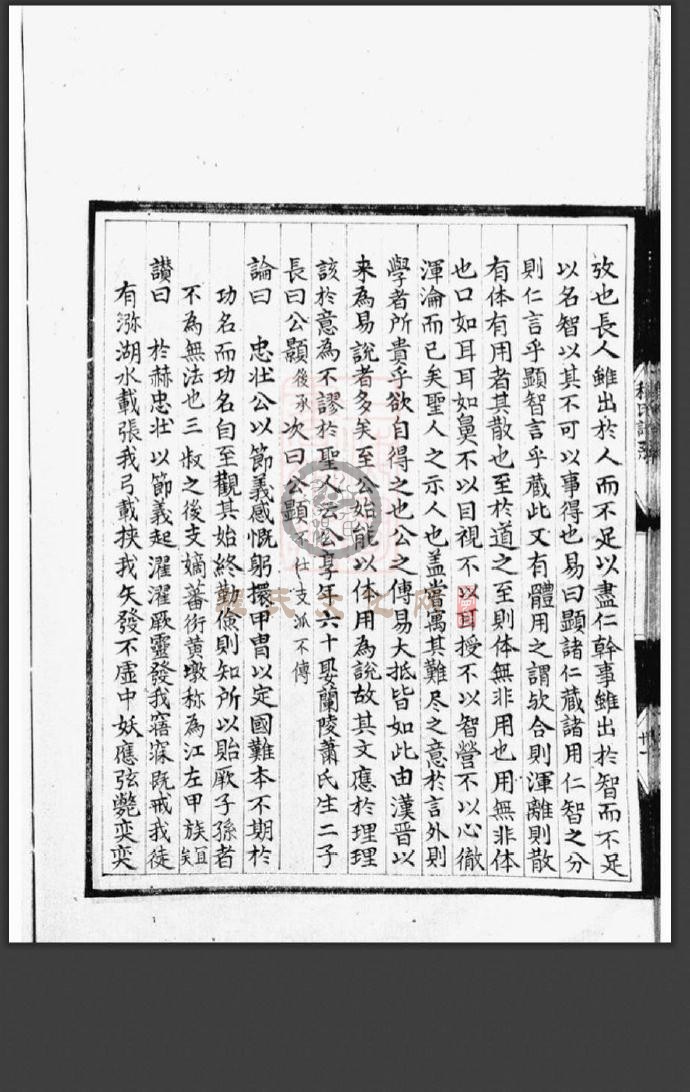 攷也長人雖出於人而不足以盡仁幹事雖出於智而不足
以名智以其不可以事得也易曰顯諸仁蔵諸用仁智之分
則仁言乎顯智言乎蔵此又有體用之謂欤合則渾離則散
有体有用者其散也至於道之至則体無非用也用無非体
也口如耳耳如鼻不以目視不以耳授不以智營不以心徹
渾淪而已矣聖人之示人也盖嘗寓其難尽之意於言外則
學者所貴乎欲自得之也公之傳易大抵皆如此由漢晋以
来為易說者多矣至公始能以体用為說故其文應於理理
該於意為不謬於聖人云公享年六十娶蘭陵蕭氏生二子
長曰公顥後承次曰公顯不仕支派不傳
論曰　忠壮公以節義感慨躬擐甲冑以定國難本不期於
功名而功名自至觀其始終勤儉則知所以貽厥子孫者
不為無法也三叔之後支嫡蕃衍黄墩称為江左甲族宜矣
讃曰　於赫忠壮以節義起濯濯厥靈發我寤寐既戒我徒
有㳽湖水載張我弓載挟我矢發不虚中妖應弦斃奕奕
程氏譜
廿一